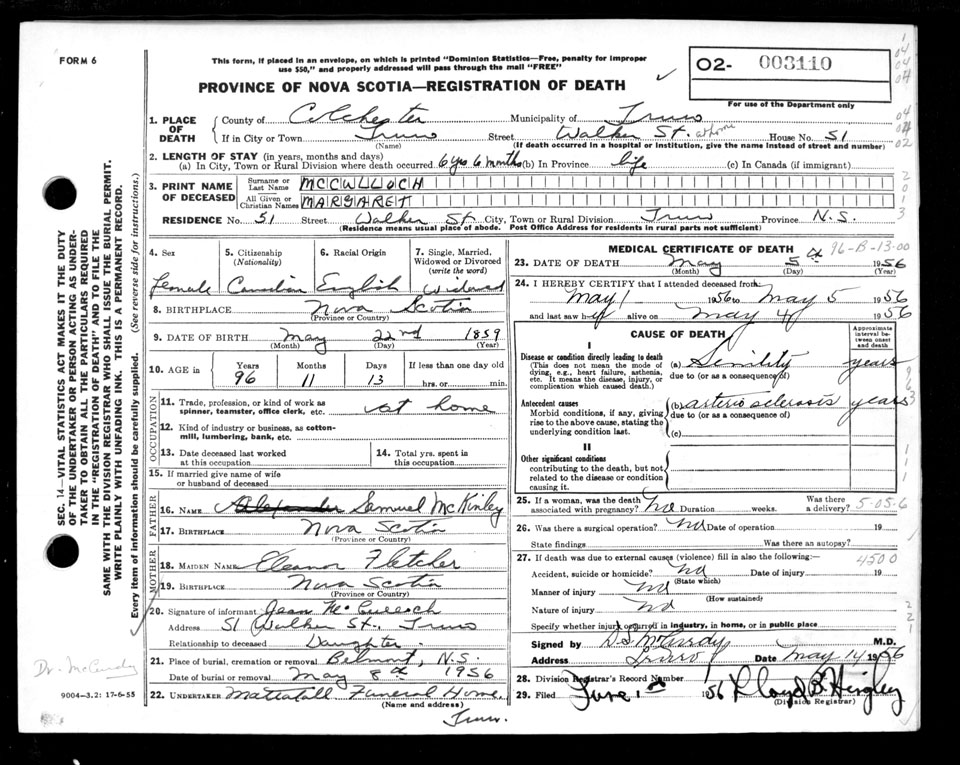 FORM 6
This form, if placed in an envelope, on which is printed "Dominion Statistics—Free, penalty for improper
use $50," and properly addressed will pass through the mail "FREE"
PROVINCE OF NOVA SCOTIA—REGISTRATION OF DEATH
O2- 003110
For use of the Department only
1. PLACE OF DEATH County of Colchester Municipality of Truro
If in City or Town Truro Street Walker St. at home House No. 51
(Name) (If death occurred in a hospital or institution, give the name instead of street and number)
2. LENGTH OF STAY (in years, months and days)
(a) In City, Town or Rural Division where death occurred 6 yrs 6 months (b) In Province life (c) In Canada (if immigrant)
3. PRINT NAME OF DECEASED Surname or Last Name MCCULLOCH
All Given or Christian Names MARGARET
RESIDENCE No. 51 Street Walker St City, Town or Rural Division Truro Province N.S.
(Residence means usual place of abode. Post Office Address for residents in rural parts not sufficient)
4. Sex 5. Citizenship (Nationality) 6. Racial Origin 7. Single, Married, Widowed or Divorced (write the word)
Female Canadian English Widowed
8. BIRTHPLACE Nova Scotia
(Province or Country)
9. DATE OF BIRTH May 22nd 1859
(Month) (Day) (Year)
10. AGE in Years Months Days If less than one day old
96 11 13 hrs. or min.
OCCUPATION
11. Trade, profession, or kind of work as
spinner, teamster, office clerk, etc. at home
12. Kind of industry or business, as cotton-
mill, lumbering, bank, etc.
13. Date deceased last worked
at this occupation
14. Total yrs. spent in
this occupation
15. If married give name of wife
or husband of deceased
FATHER
16. NAME Alexander Samuel McKinley
17. BIRTHPLACE Nova Scotia
(Province or Country)
MOTHER
18. MAIDEN NAME Eleanor Fletcher
19. BIRTHPLACE Nova Scotia
(Province or Country)
20. Signature of informant Jean McCulloch
Address 51 Walker St., Truro
Relationship to deceased Daughter
21. Place of burial, cremation or removal Belmont, N.S.
Date of burial or removal May 8th 1956
22. UNDERTAKER Mattatall Funeral Home
(Name and address)
Truro.
MEDICAL CERTIFICATE OF DEATH
96-B-13-00
23. DATE OF DEATH May 5th 1956
(Month) (Day) (Year)
24. I HEREBY CERTIFY that I attended deceased from
May 1 1956 to May 5 1956
and last saw her alive on May 4 1956
CAUSE OF DEATH
Approximate interval between onset and death
I
Disease or condition directly leading to death
(This does not mean the mode of
dying, e.g., heart failure, asthenia,
etc. It means the disease, injury, or
complication which caused death.)
(a) Senility years
due to (or as a consequence of)
Antecedent causes
Morbid conditions, if any, giving
rise to the above cause, stating the
underlying condition last.
(b) arterio sclerosis years
due to (or as a consequence of)
(c)
II
Other significant conditions
contributing to the death, but not
related to the disease or condition
causing it.
25. If a woman, was the death
associated with pregnancy? No Duration weeks. Was there a delivery? 5-05-6
26. Was there a surgical operation? No Date of operation 19
State findings Was there an autopsy?
27. If death was due to external causes (violence) fill in also the following:— 4500
Accident, suicide or homicide? No Date of injury 19
(State which)
Manner of injury No
(How sustained)
Nature of injury No
Specify whether injury occurred in industry, in home, or in public place
Signed by D.S. McCurdy M.D.
Address Truro Date May 14 1956
28. Division Registrar's Record Number
29. Filed June 1st 1956 Lloyd B. Hingley
(Division Registrar)
SEC. 14—VITAL STATISTICS ACT MAKES IT THE DUTY
OF THE UNDERTAKER OR PERSON ACTING AS UNDER-
TAKER TO OBTAIN ALL THE PARTICULARS REQUIRED
IN THE "REGISTRATION OF DEATH" AND TO FILE THE
SAME WITH THE DIVISION REGISTRAR WHO SHALL ISSUE THE BURIAL PERMIT.
WRITE PLAINLY WITH UNFADING INK. THIS IS A PERMANENT RECORD.
Every item of information should be carefully supplied. (See reverse side for instructions.)
Dr. McCurdy
9004—3.2: 17-6-55